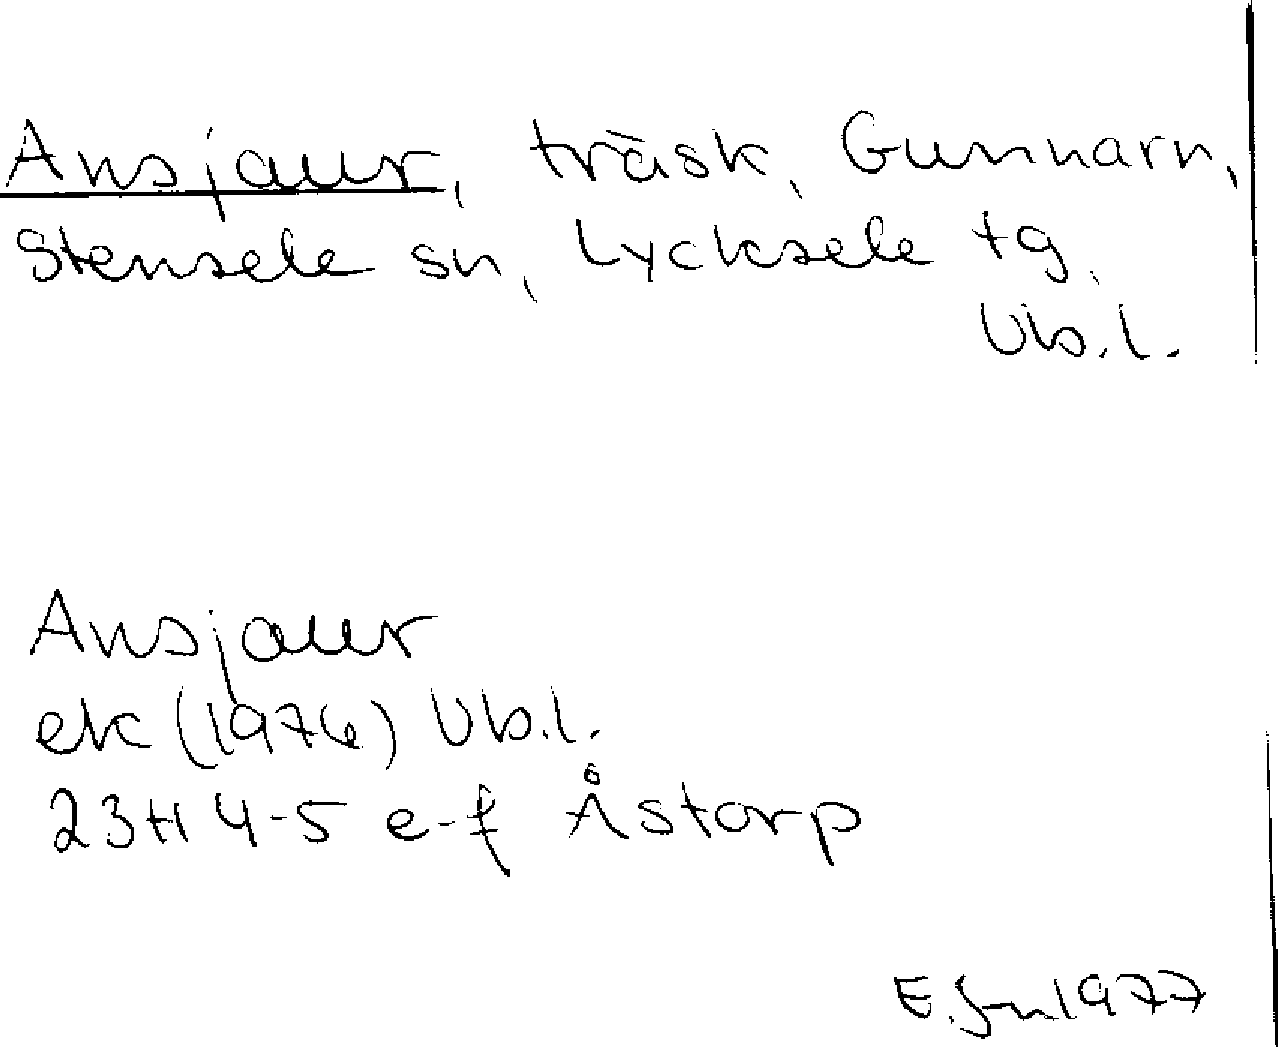 Ansjaur, träsk, Gunnarn,
Stensele sn, Lycksele tg,
Vb.l.
Ansjaur
ek (1976) Vb.l.
23H 4-5 e-f Åstorp
E.Jn 1977